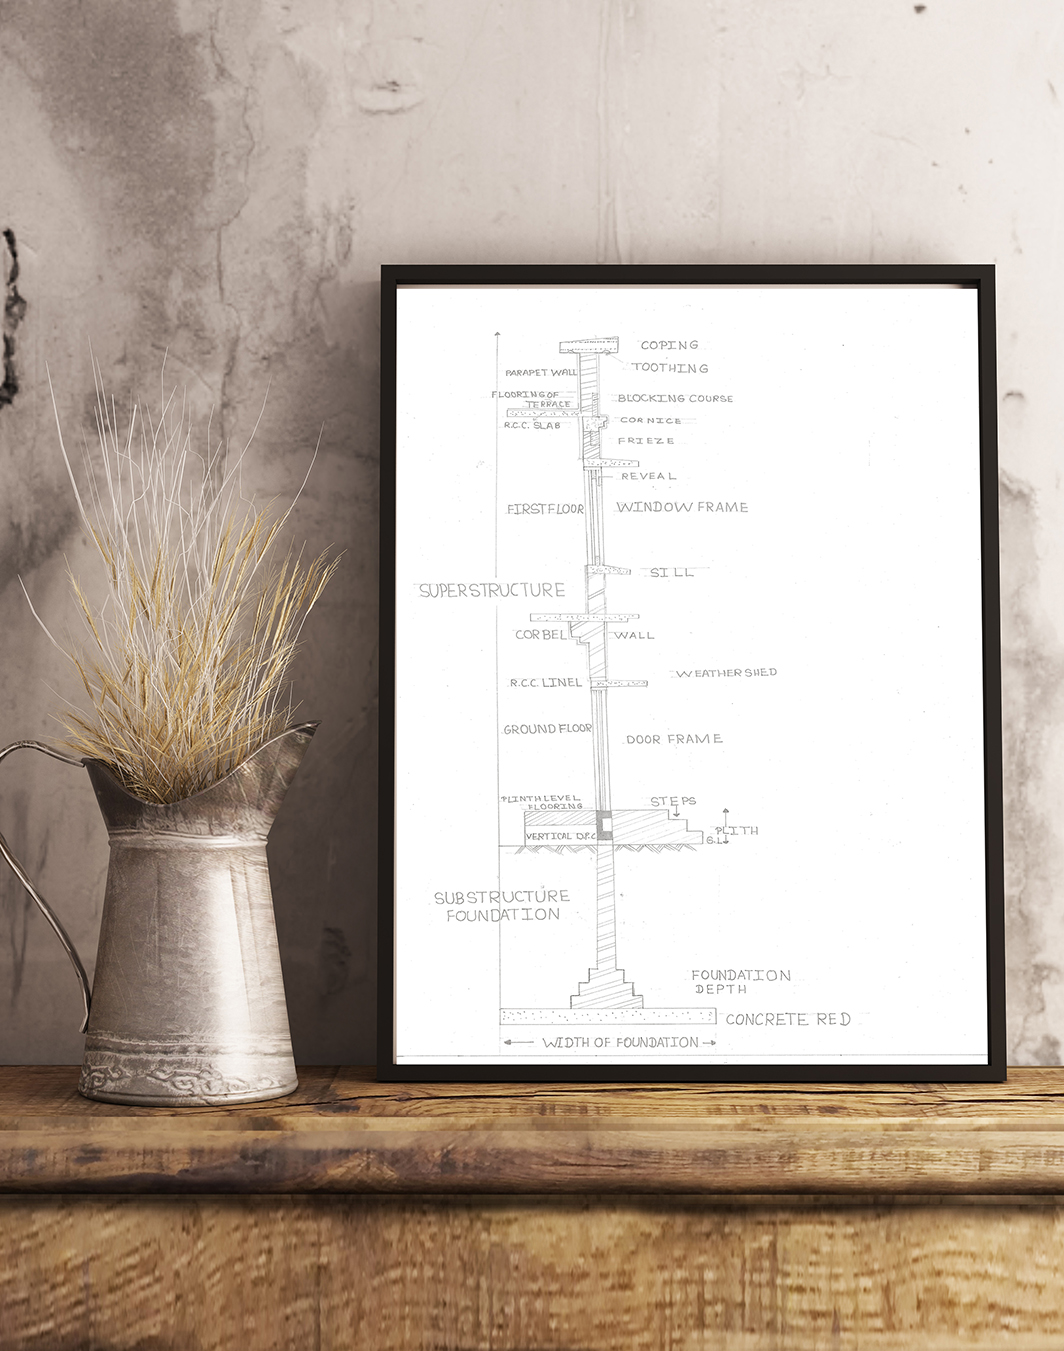 COPING
TOOTHING
PARAPET WALL
FLOORING OF
TERRACE
BLOCKING COURSE
R.C.C. SLAB
CORNICE
FRIEZE
REVEAL
FIRST FLOOR
WINDOW FRAME
SILL
SUPERSTRUCTURE
CORBEL
WALL
WEATHERSHED
R.C.C. LINEL
GROUND FLOOR
DOOR FRAME
PLINTH LEVEL
FLOORING
STEPS
VERTICAL D.P.C
PLITH
G.L
SUBSTRUCTURE
FOUNDATION
FOUNDATION
DEPTH
CONCRETE RED
WIDTH OF FOUNDATION